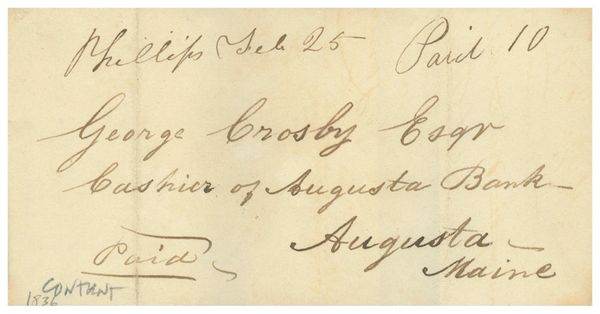 Phillips Feb 25 Paid 10
George Crosby Esqr
Cashier of Augusta Bank
Augusta
Paid
Maine
CONTENT
1836